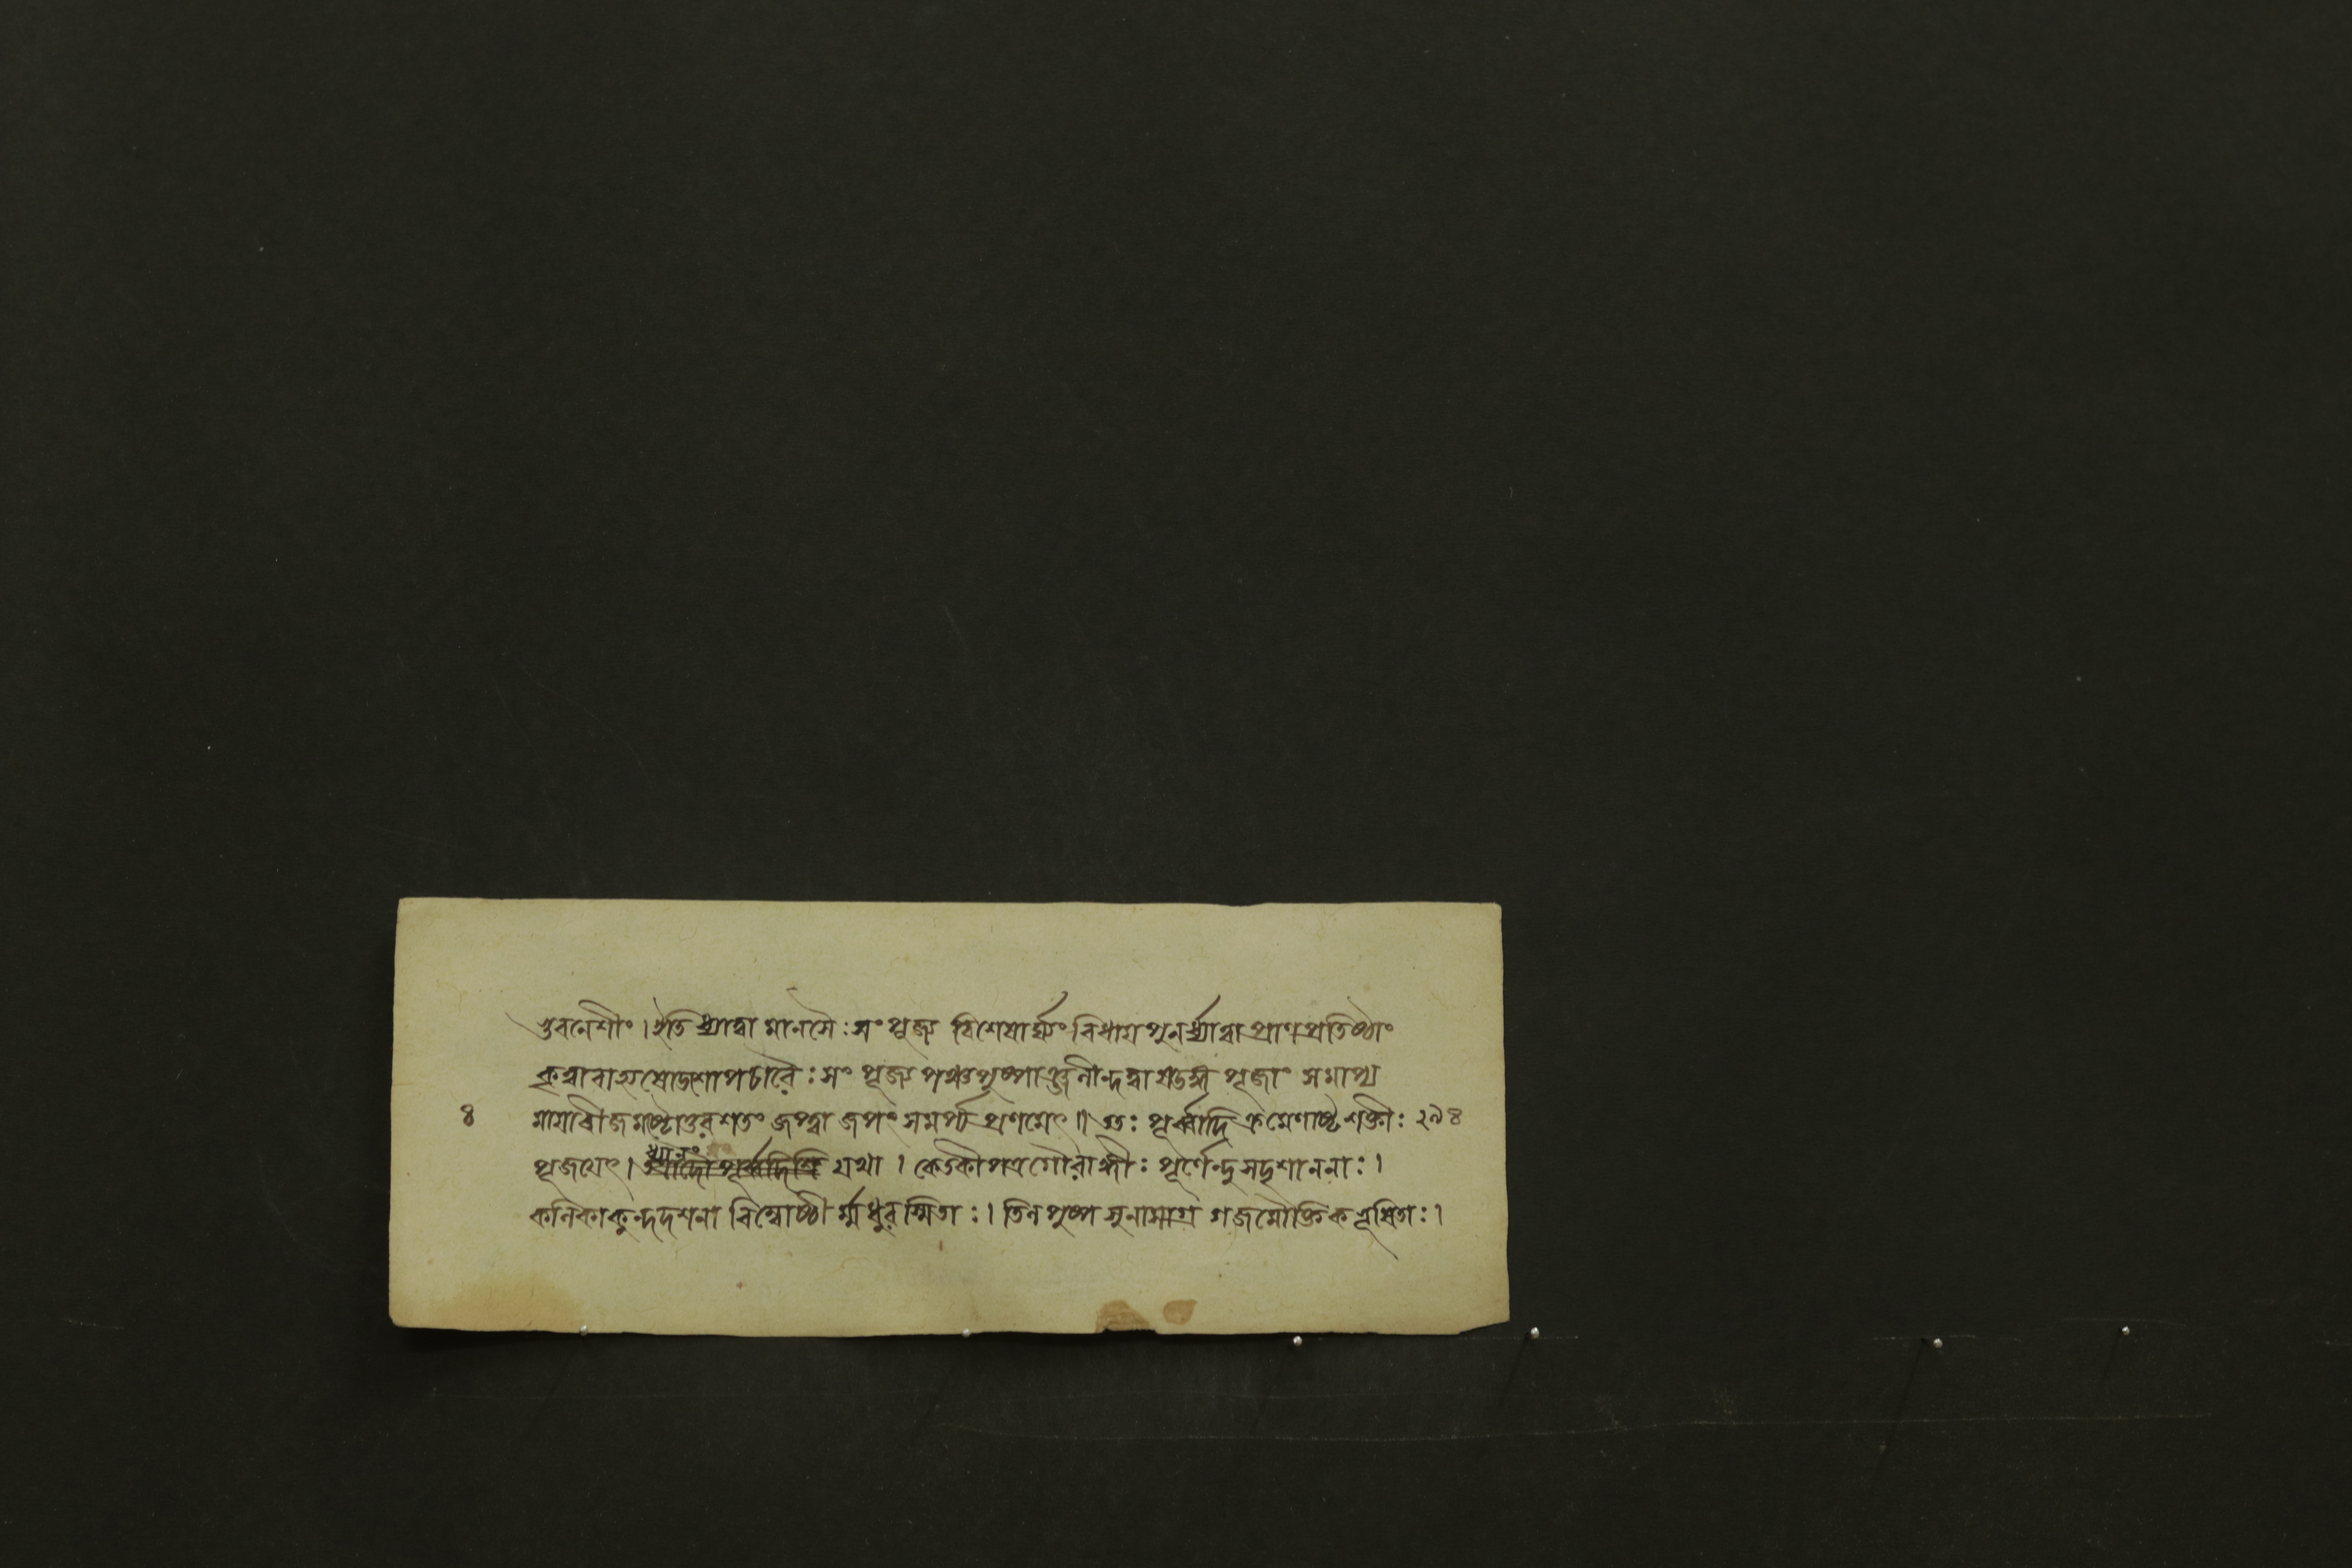 ভুবনেশীং। ইতি ধ্যাত্বা মানসৈঃ সং পূজ্য বিশেষার্ঘ্যং বিধায় পুনর্ধ্যাত্বা প্রাণপ্রতিষ্ঠাং
কৃত্বা বাহ্যষোডশোপচারৈঃ সং পূজ্য পঞ্চপুষ্পাঞ্জলীন্দত্বা ষডঙ্গ পূজাং সমাপ্য
৪ মায়াবীজমষ্টোত্তরশতং জপ্ত্বা জপং সমর্প্য প্রণমেৎ॥ ততঃ পূর্ব্বাদি ক্রমেণাষ্টশক্তীঃ
ধ্যানং
পূজয়েৎ। যথা। কেতকীপত্রগৌরাঙ্গীঃ পূর্ণেন্দুসদৃশাননাঃ।
কলিকাকুন্দদশনা বিম্বোষ্ঠী র্ম্মধুরস্মিতাঃ। তিলপুষ্প সুনাসাগ্র গজমৌক্তিক ভূষিতাঃ।